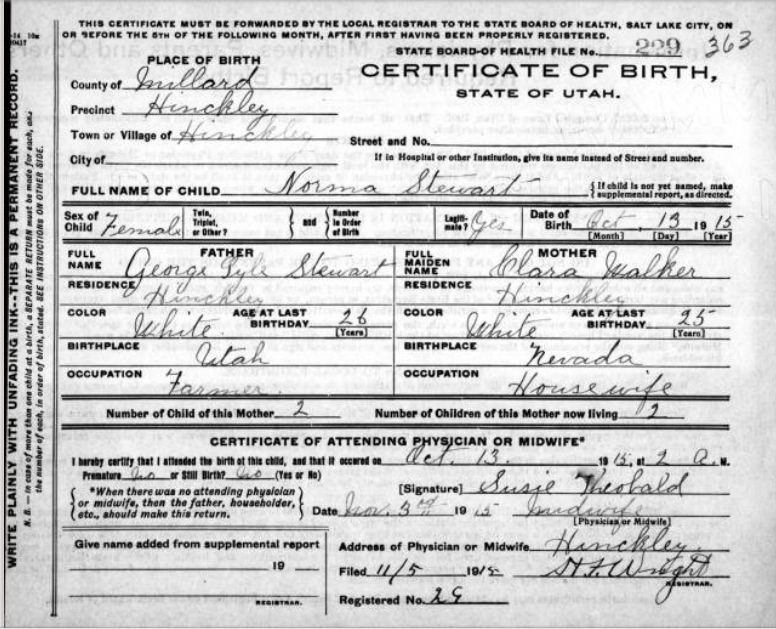 THIS CERTIFICATE MUST BE FORWARDED BY THE LOCAL REGISTRAR TO THE STATE BOARD OF HEALTH, SALT LAKE CITY, ON
OR BEFORE THE 5TH OF THE FOLLOWING MONTH, AFTER FIRST HAVING BEEN PROPERLY REGISTERED.
STATE BOARD OF HEALTH FILE No. 229 363
PLACE OF BIRTH
CERTIFICATE OF BIRTH,
STATE OF UTAH.
County of Millard
Precinct Hinckley
Town or Village of Hinckley Street and No.
City of If in Hospital or other Institution, give its name instead of Street and number.
FULL NAME OF CHILD Norma Stewart { If child is not yet named, make supplemental report, as directed.
Sex of Child Female Twin, Triplet, or Other? } and { Number in Order of Birth Legiti- mate? Yes Date of Birth Oct 13 1915
[Month] [Day] [Year]
FULL NAME FATHER George Lyle Stewart FULL MAIDEN NAME MOTHER Clara Walker
RESIDENCE Hinckley RESIDENCE Hinckley
COLOR White AGE AT LAST BIRTHDAY 26 [Years] COLOR White AGE AT LAST BIRTHDAY 25 [Years]
BIRTHPLACE Utah BIRTHPLACE Nevada
OCCUPATION Farmer. OCCUPATION Housewife
Number of Child of this Mother 2 Number of Children of this Mother now living 2
CERTIFICATE OF ATTENDING PHYSICIAN OR MIDWIFE*
I hereby certify that I attended the birth of this child, and that it occured on Oct. 13. 1915, at 2 A. M.
Premature No or Still Birth? No (Yes or No)
{ *When there was no attending physician or midwife, then the father, householder, etc., should make this return. }
[Signature] Susie Theobald
Date Nov. 3rd 1915 midwife
[Physician or Midwife]
Give name added from supplemental report
19
REGISTRAR.
Address of Physician or Midwife Hinckley
Filed 11/5 1915 Wright
REGISTRAR.
Registered No. 29
WRITE PLAINLY WITH UNFADING INK--THIS IS A PERMANENT RECORD.
N. B. — In case of more than one child at a birth, a SEPARATE RETURN must be made for each, and
the number of each, in order of birth, stated. SEE INSTRUCTIONS ON OTHER SIDE.